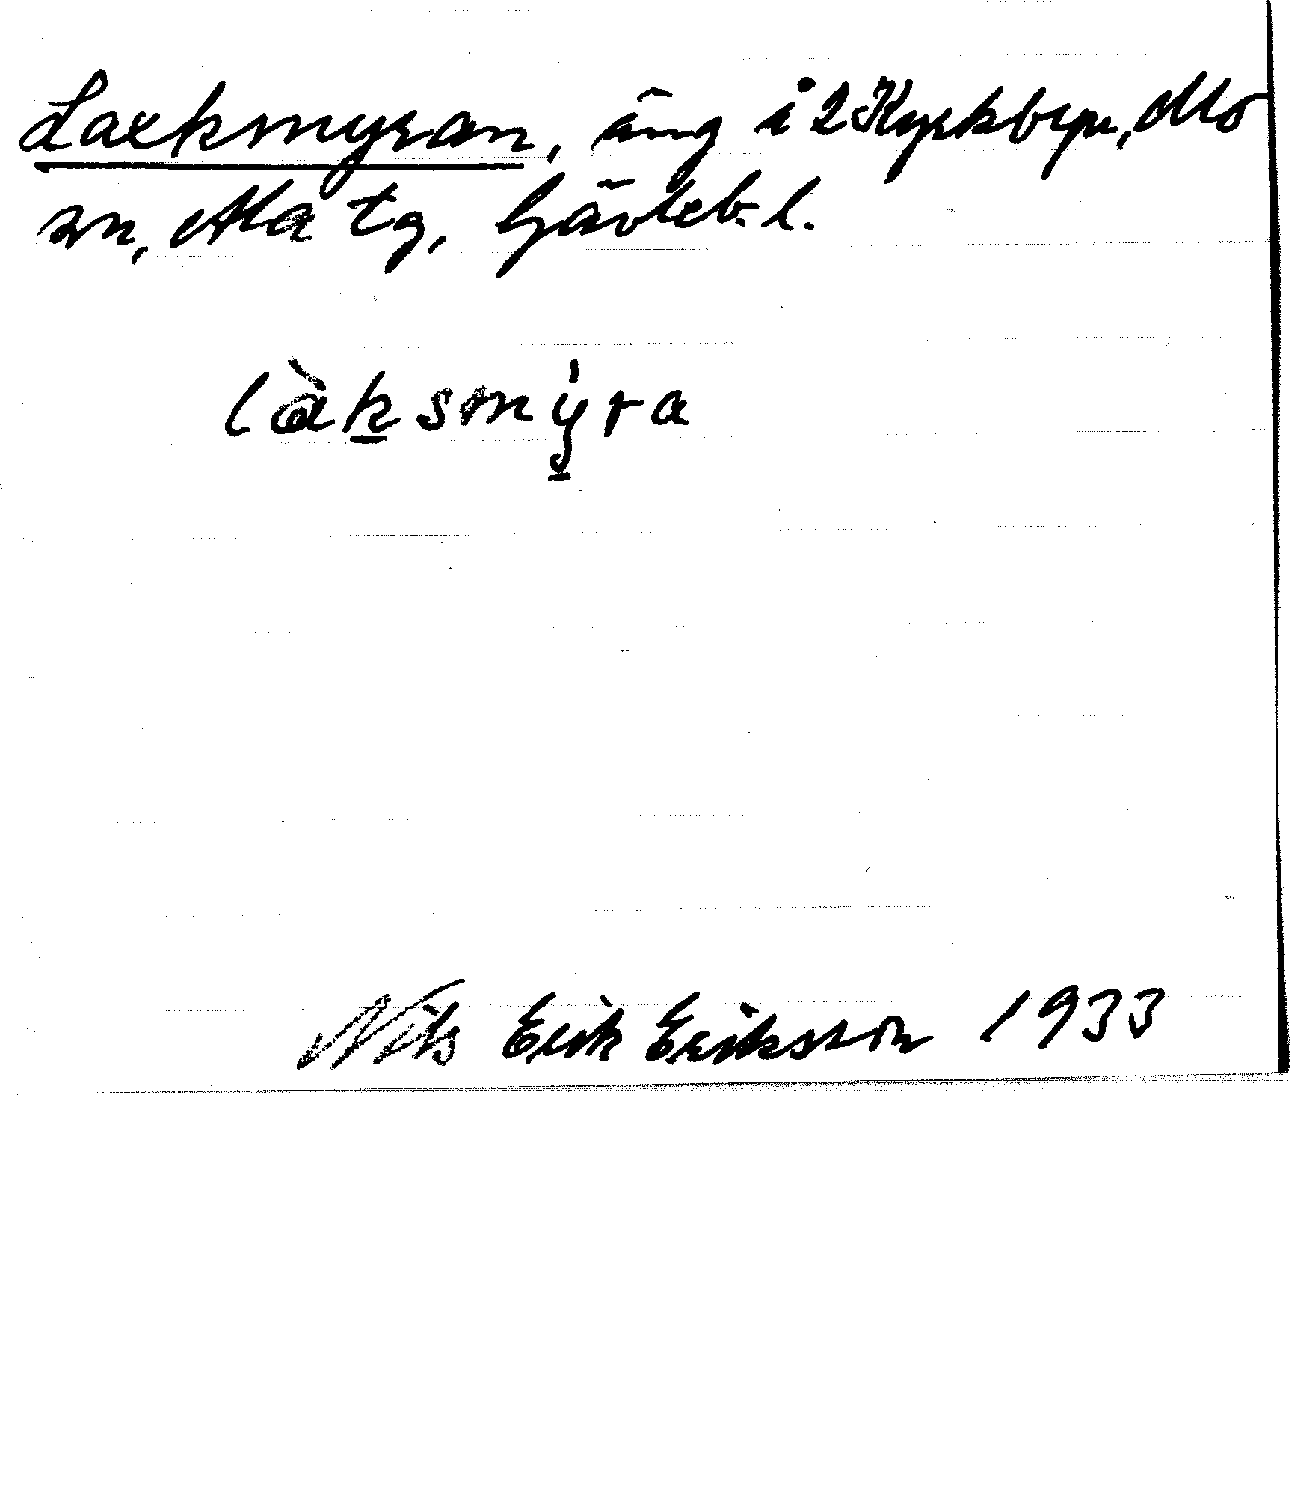 Lackmyran, äng i 2 Kyrkbyn, Mo
sn, Ala tg, Gävleb. l.
làksmý̠ra
Nils Erik Eriksson 1933